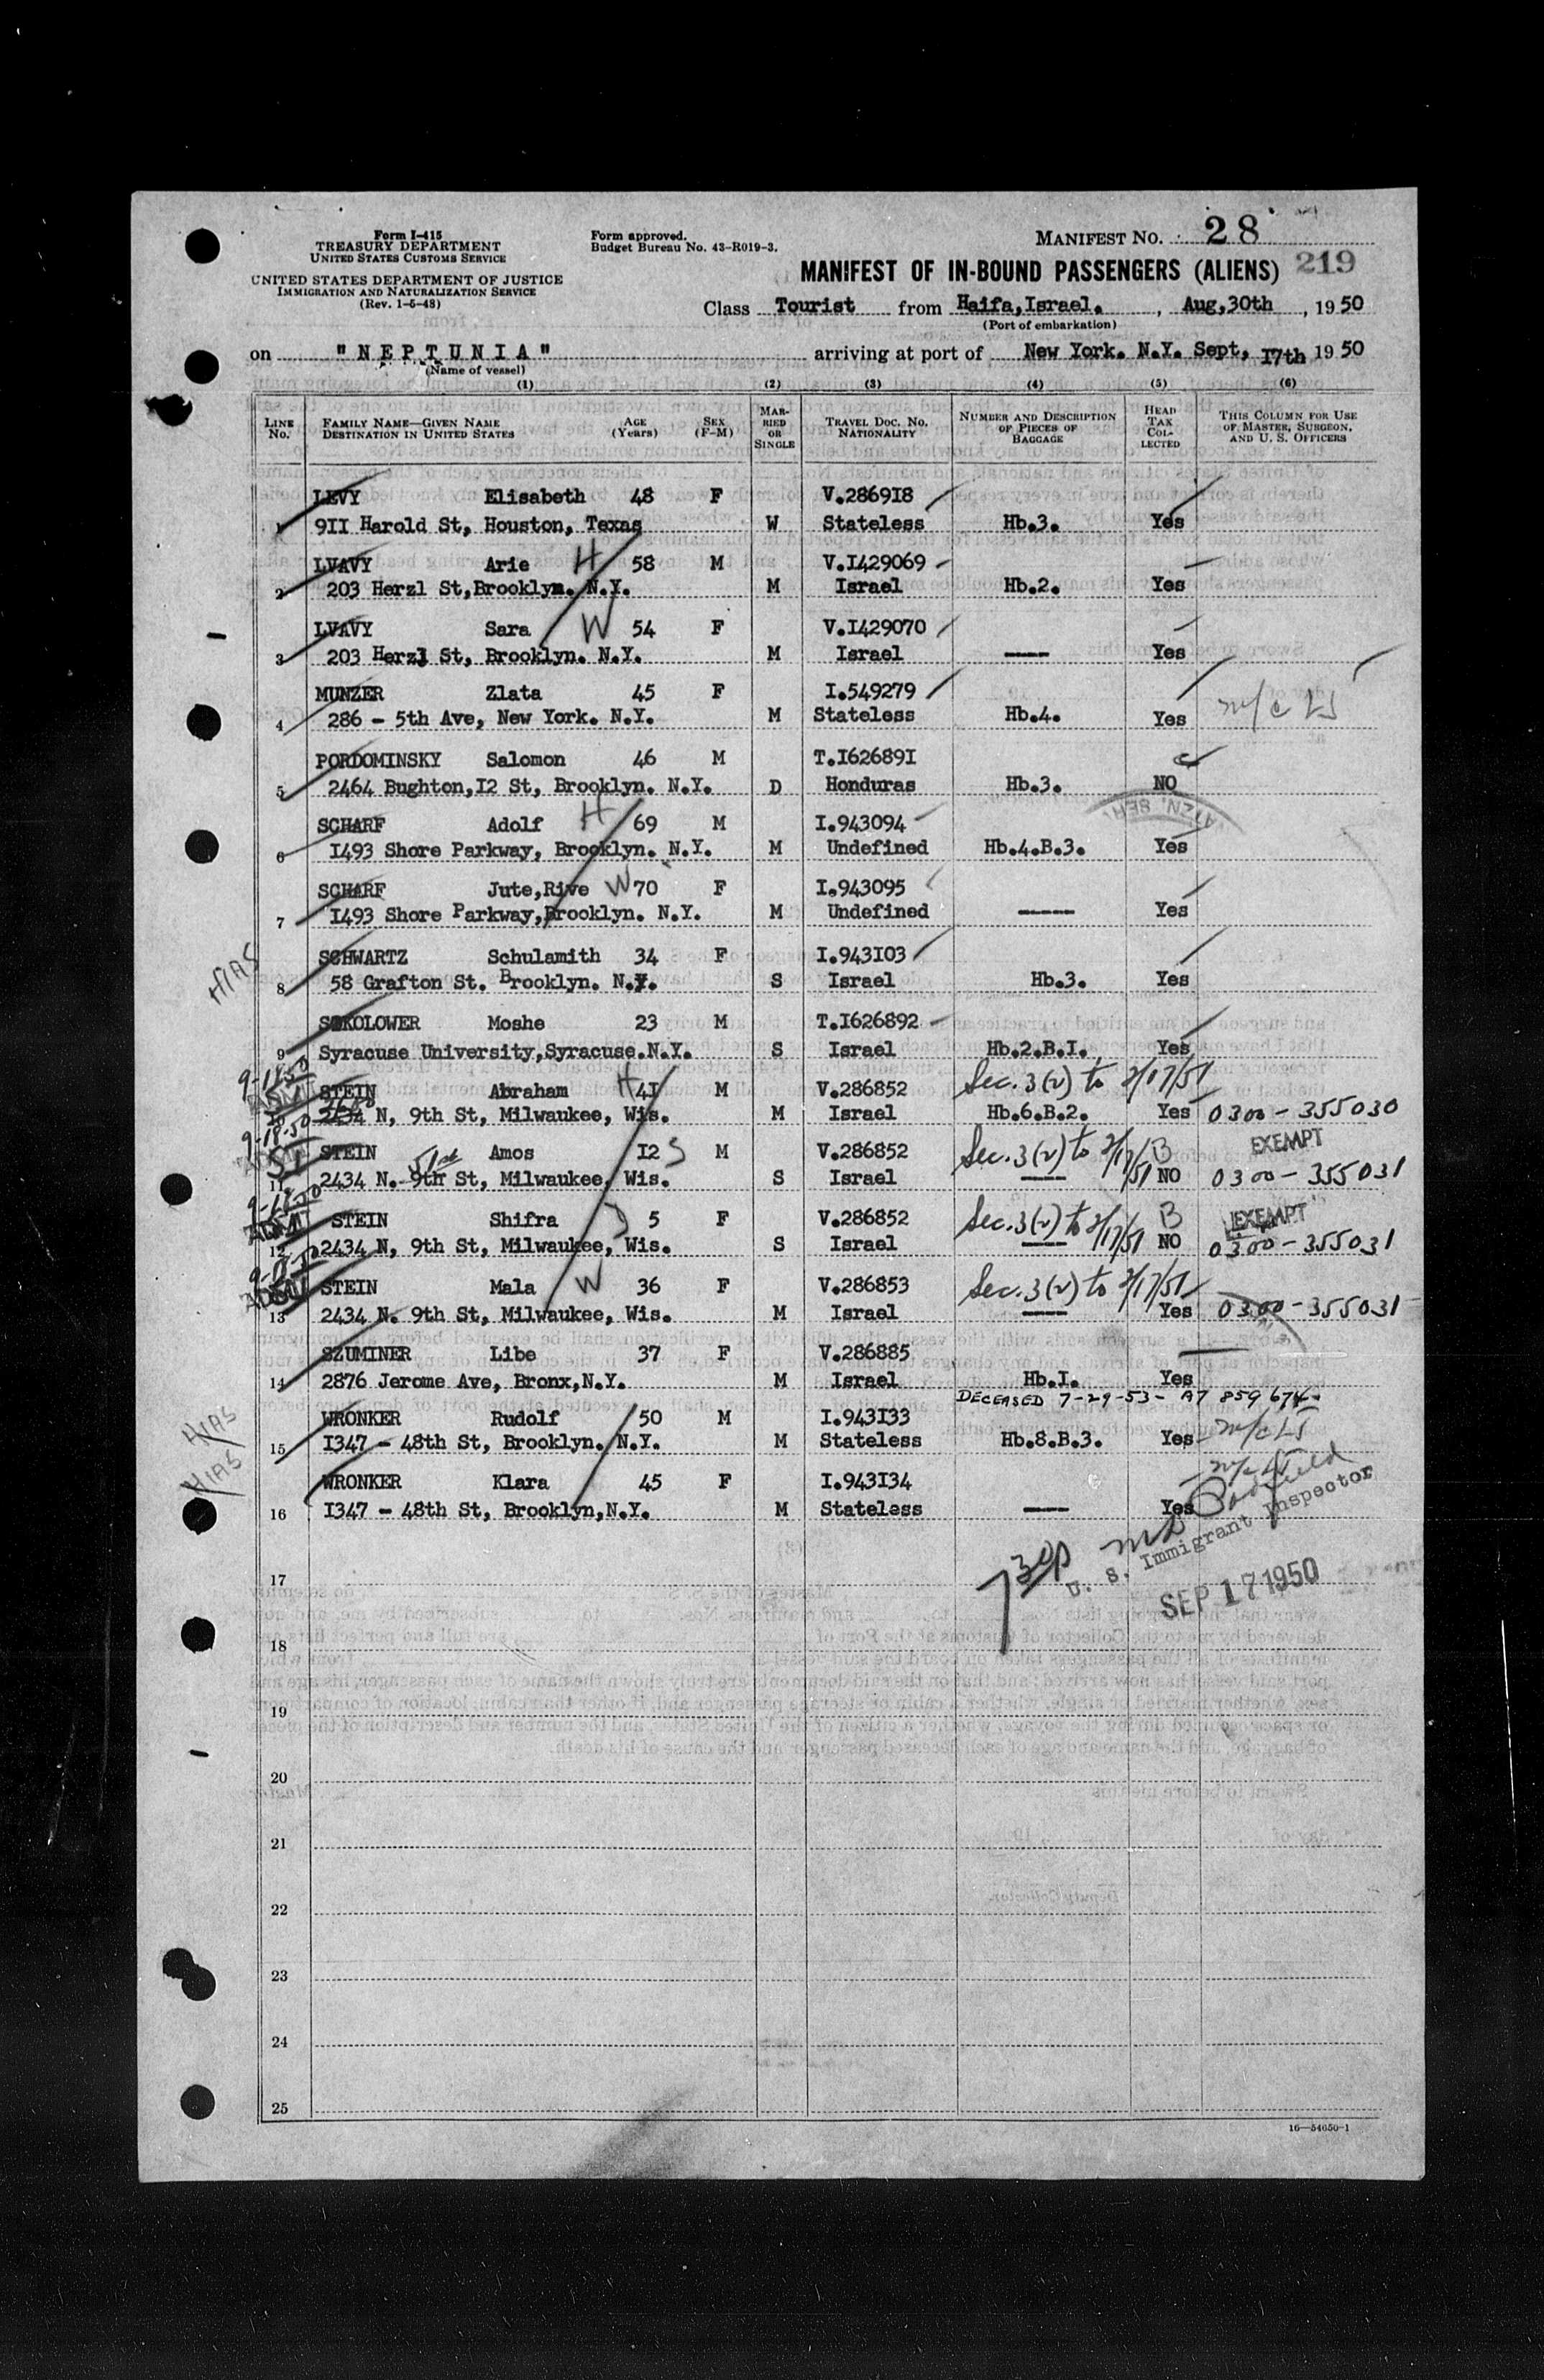 Form I-415
TREASURY DEPARTMENT
UNITED STATES CUSTOMS SERVICE
UNITED STATES DEPARTMENT OF JUSTICE
IMMIGRATION AND NATURALIZATION SERVICE
(Rev. 1-5-48)
Form approved.
Budget Bureau No. 43-R019-3.
MANIFEST NO. 28
MANIFEST OF IN-BOUND PASSENGERS (ALIENS) 219
Class Tourist from Haifa,Israel. , Aug,30th , 19 50
(Port of embarkation)
on "NEPTUNIA" arriving at port of New York. N.Y. Sept, 17th 19 50
(Name of vessel)
(1) (2) (3) (4) (5) (6)
LINE No. FAMILY NAME—GIVEN NAME DESTINATION IN UNITED STATES AGE (Years) SEX (F-M) MARRIED OR SINGLE TRAVEL DOC. NO. NATIONALITY NUMBER AND DESCRIPTION OF PIECES OF BAGGAGE HEAD TAX COLLECTED THIS COLUMN FOR USE OF MASTER, SURGEON, AND U. S. OFFICERS
LEVY Elisabeth 48 F V.286918
1 911 Harold St, Houston, Texas W Stateless Hb.3. Yes
LVAVY Arie H 58 M V.I429069
2 203 Herzl St,Brooklyn. N.Y. M Israel Hb.2. Yes
LVAVY Sara W 54 F V.I429070
3 203 Herzl St, Brooklyn. N.Y. M Israel ---- Yes
MUNZER Zlata 45 F I.549279
4 286 - 5th Ave, New York. N.Y. M Stateless Hb.4. Yes
PORDOMINSKY Salomon 46 M T.I62689I
5 2464 Bughton,I2 St, Brooklyn. N.Y. D Honduras Hb.3. NO
SCHARF Adolf H 69 M I.943094
6 I493 Shore Parkway, Brooklyn. N.Y. M Undefined Hb.4.B.3. Yes
SCHARF Jute,Rive W 70 F I.943095
7 I493 Shore Parkway,Brooklyn. N.Y. M Undefined ----- Yes
HIAS
SCHWARTZ Schulamith 34 F I.943I03
8 58 Grafton St. Brooklyn. N.Y. S Israel Hb.3. Yes
SOKOLOWER Moshe 23 M T.I626892
9 Syracuse University,Syracuse.N.Y. S Israel Hb.2.B.I. Yes
9-18-50 ADM STEIN Abraham H 4I M V.286852 Sec. 3(2) to 3/17/51
10 2434 N, 9th St, Milwaukee, Wis. M Israel Hb.6.B.2. Yes 0300-355030
9-18-50 STEIN Amos I2 S M V.286852 Sec. 3(2) to 3/17/51 B EXEMPT
11 2434 N. 9th 51st St, Milwaukee, Wis. S Israel ---- NO 0300-355031
9-18-50 ADM STEIN Shifra D 5 F V.286852 Sec. 3(2) to 3/17/51 B EXEMPT
12 2434 N, 9th St, Milwaukee, Wis. S Israel ---- NO 0300-355031
9-18-50 ADM STEIN Mala W 36 F V.286853 Sec. 3(2) to 3/17/51
13 2434 N. 9th St, Milwaukee, Wis. M Israel ---- Yes 0300-355031
SZUMINER Libe 37 F V.286885
14 2876 Jerome Ave, Bronx,N.Y. M Israel Hb.I. Yes
DECEASED 7-29-53- A7 859 674
HIAS
WRONKER Rudolf 50 M I.943I33
15 I347 - 48th St, Brooklyn. N.Y. M Stateless Hb.8.B.3. Yes
HIAS
WRONKER Klara 45 F I.943I34
16 I347 - 48th St, Brooklyn,N.Y. M Stateless ---- Yes
U. S. Immigrant Inspector
730p
SEP 17 1950
17
18
19
20
21
22
23
24
25
16—54650-1